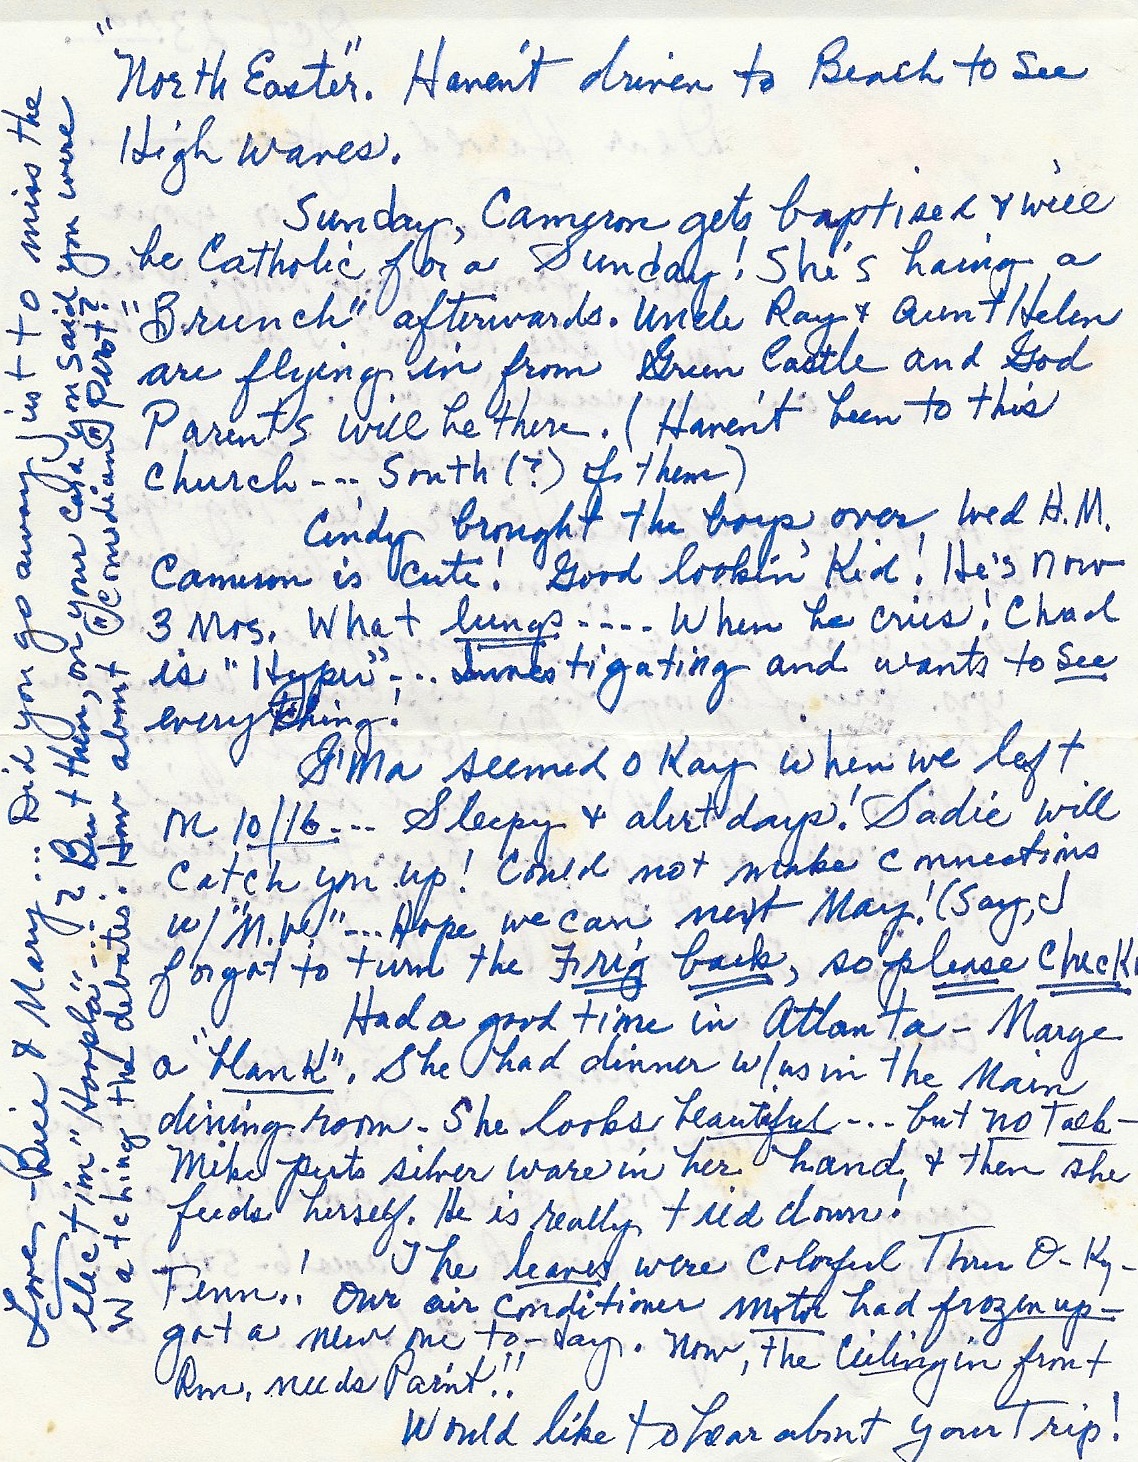 "North Easter". Haven't driven to Beach to see
High waves.
Sunday, Cameron gets baptised & will
be Catholic for a Sunday! She's haing a
"Brunch" afterwards. Uncle Ray & Aunt Helen
are flying in from Green Castle and God
Parents will be there. (Haven't been to this
church --- South (?) of them)
Cindy brought the boys over Wed A.M.
Cameron is cute! Good lookin' Kid! He's now
3 mos. What lungs ---- when he cries! Chad
is "Hyper" --- investigating and wants to see
everything!
G'Ma seemed okay when we left
on 10/16 --- Sleepy & alert days! Sadie will
catch you up! Could not make connections
w/ "M.W" --- Hope we can next May! (Say, I
forgot to turn the Frig back, so please check
Had a good time in Atlanta - Marge
a "blank". She had dinner w/us in the Main
dining room - She looks beautiful --- but no talk -
Mike puts silver ware in her hand, & then she
feeds herself. He is really tied down!
The leaves were colorful Thru O-Ky-
Tenn.! Our air conditioner motor had frozen up -
got a new one to-day. Now, the Ceiling in front
Rm. needs Paint!!
Would like to hear about your Trip!
Love - Bill & Mary --- Did you go away just to miss the
election "Hoopla" ---- ? But then, on your card you said you were
watching the debates. How about "comedian" Perot?